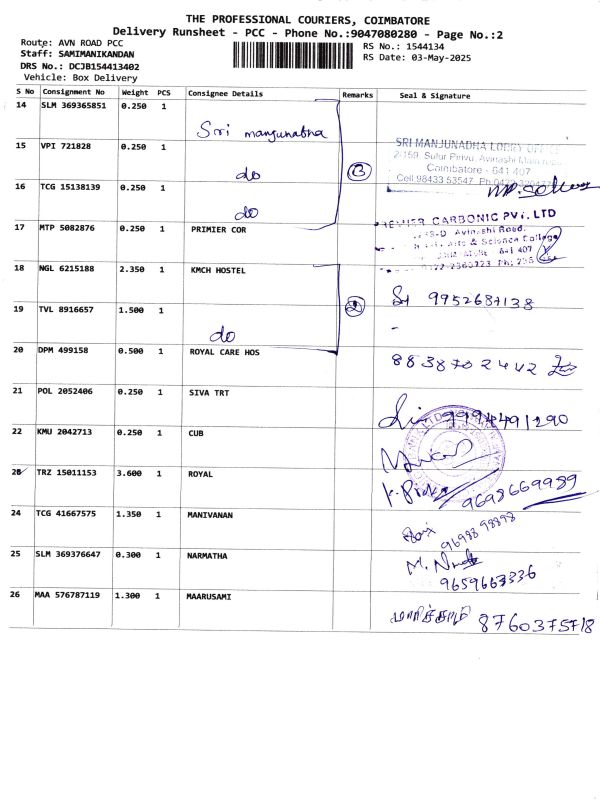 THE PROFESSIONAL COURIERS, COIMBATORE
Delivery Runsheet - PCC - Phone No.:9047080280 - Page No.:2
Route: AVN ROAD PCC
Staff: SAMIMANIKANDAN
DRS No.: DCJB154413402
Vehicle: Box Delivery
RS No.: 1544134
RS Date: 03-May-2025
S No Consignment No Weight PCS Consignee Details Remarks Seal & Signature
14 SLM 369365851 0.250 1
Sri manjunatha
15 VPI 721828 0.250 1
do
SRI MANJUNADHA LORRY OFFICE
2/159, Sulur Pirivu, Avinashi Main road
Coimbatore - 641 407
Cell:98433 53547
16 TCG 15138139 0.250 1
do
3
17 MTP 5082876 0.250 1 PRIMIER COR
PREMIER CARBONIC PVT. LTD
Avinashi Road,
Arts & Science College
641 407
18 NGL 6215188 2.350 1 KMCH HOSTEL
9952687138
19 TVL 8916657 1.500 1
do
2
20 DPM 499158 0.500 1 ROYAL CARE HOS
8838702442
21 POL 2052406 0.250 1 SIVA TRT
9994491290
22 KMU 2042713 0.250 1 CUB
23 TRZ 15011153 3.600 1 ROYAL
9698669989
24 TCG 41667575 1.350 1 MANIVANAN
25 SLM 369376647 0.300 1 NARMATHA
9659663336
26 MAA 576787119 1.300 1 MAARUSAMI
8760375718